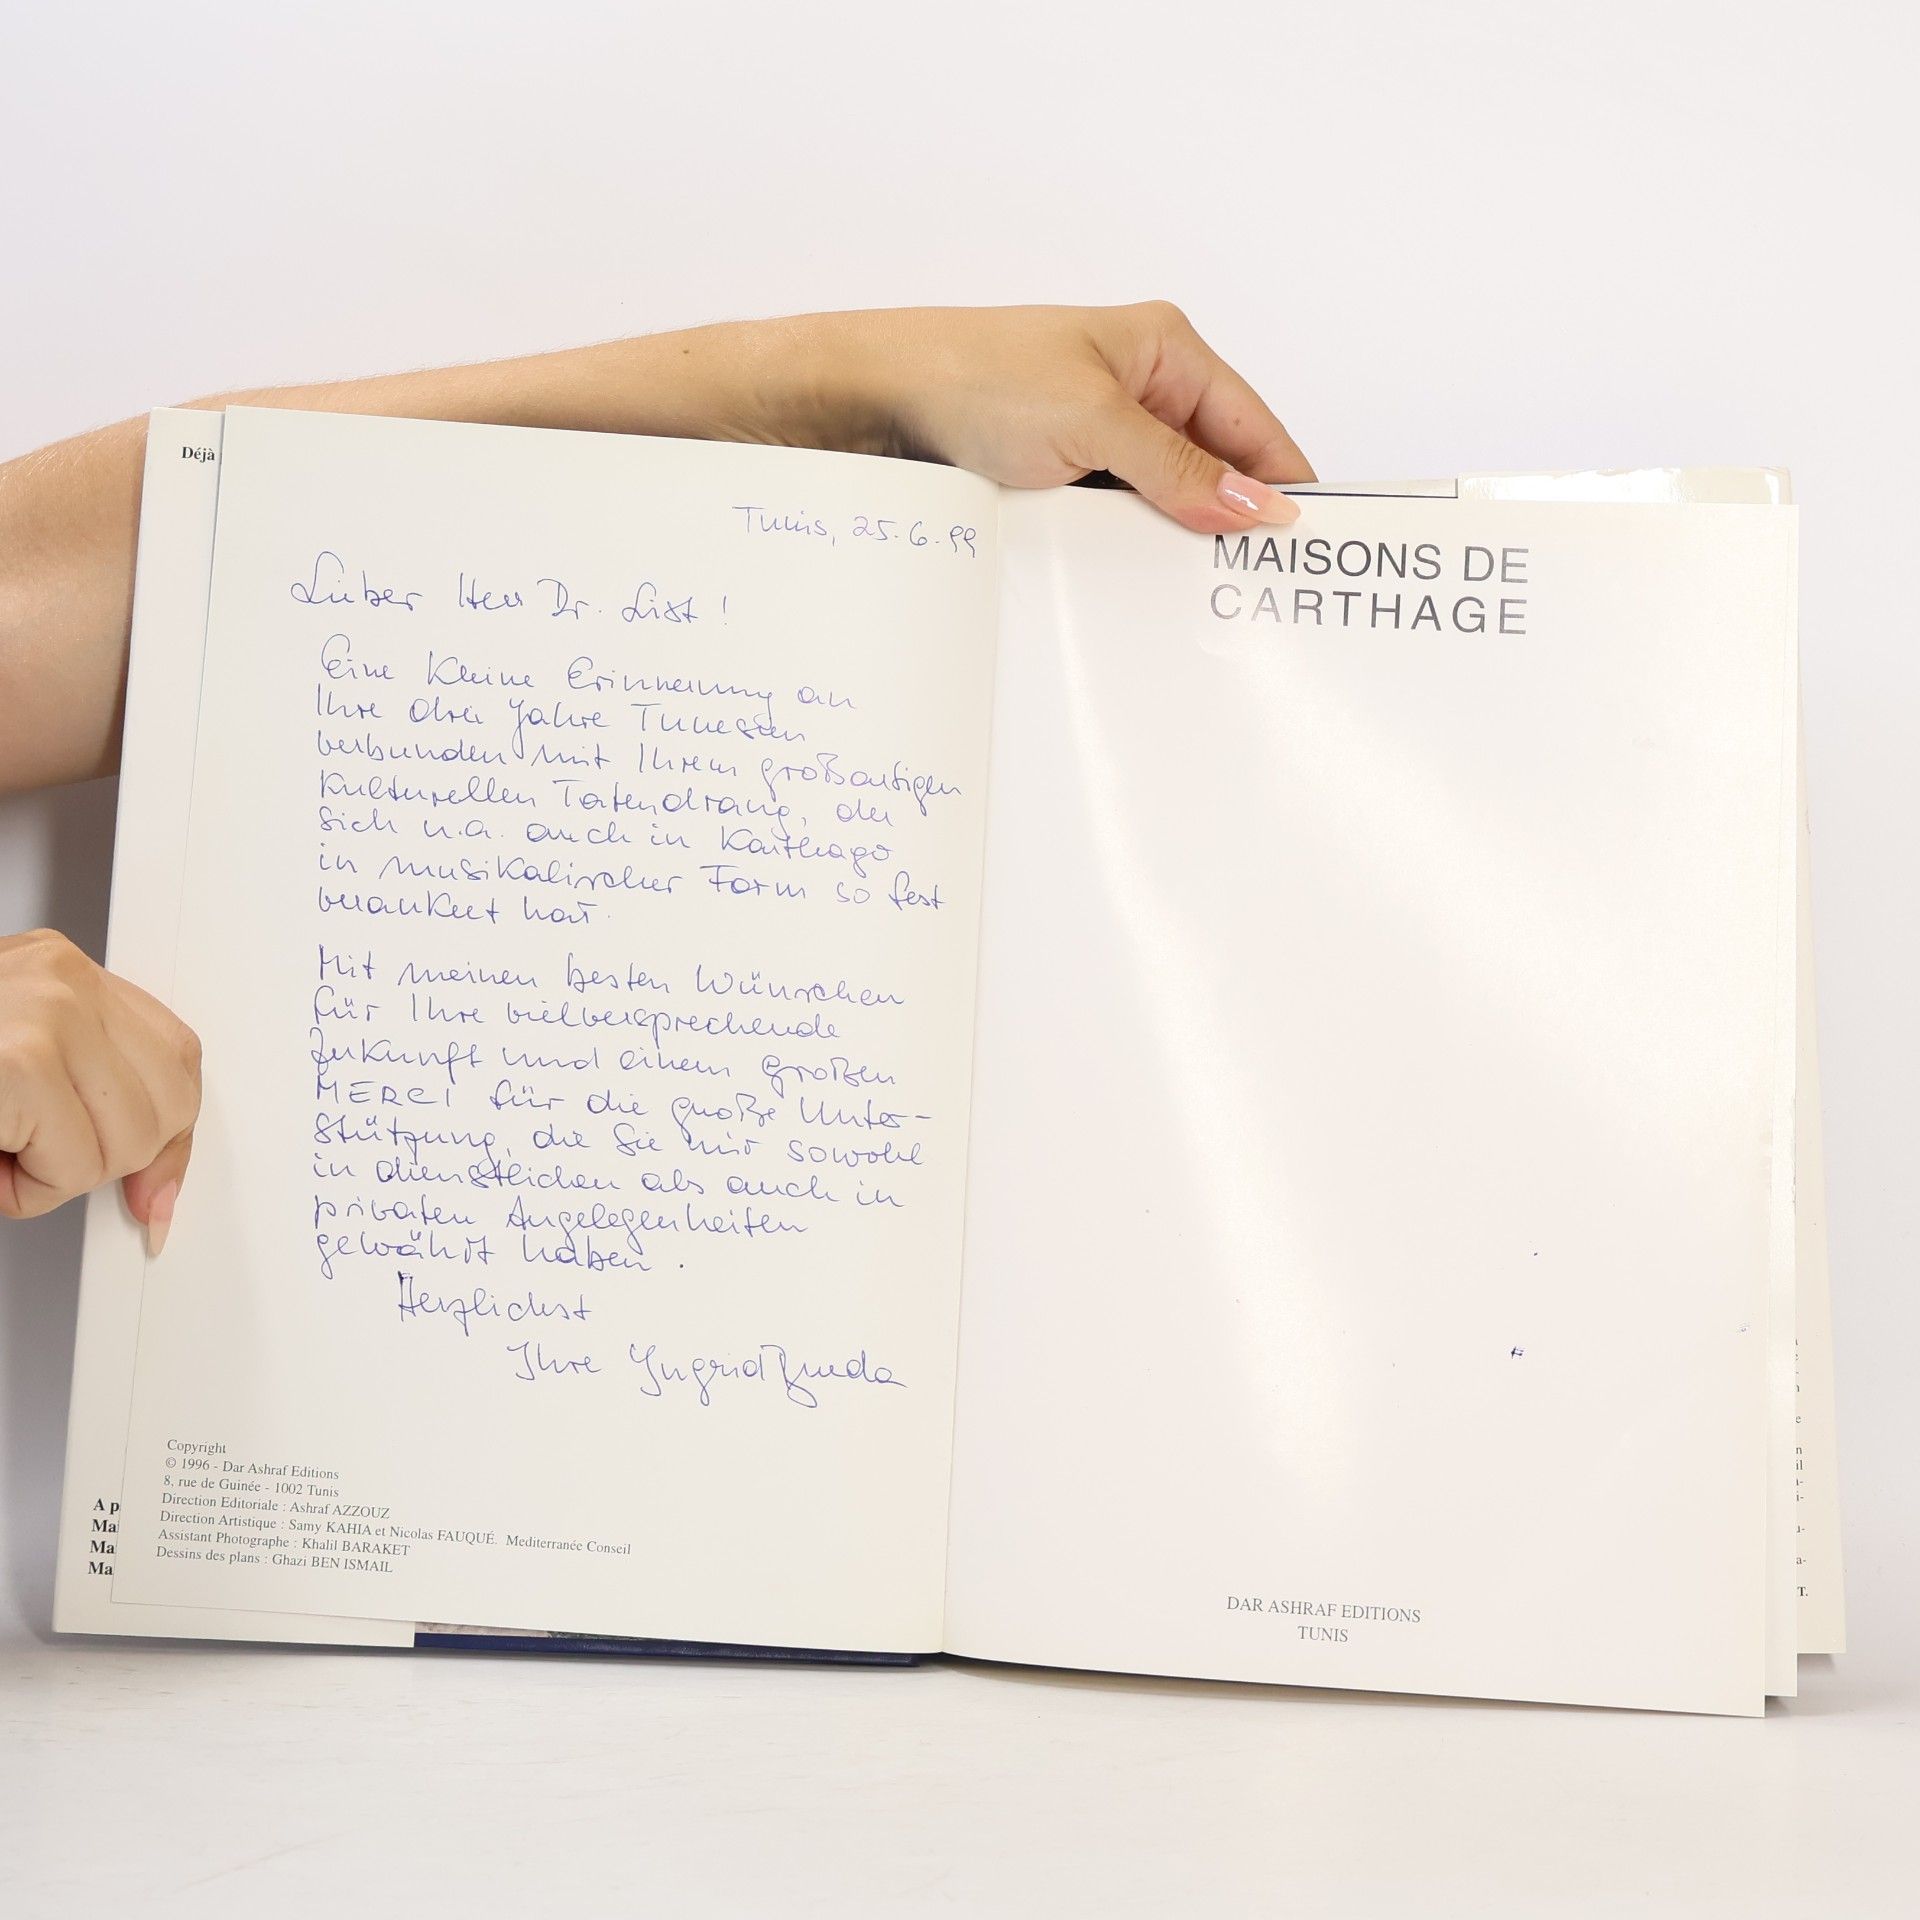 Déjà
Tunis, 25.6.99
Lieber Herr Dr. List!
Eine kleine Erinnerung an
Ihre drei Jahre Tunesien
verbunden mit Ihrem großartigen
kulturellen Tatendrang, der
sich u.a. auch in Karthago
in musikalischer Form so fest
verankert hat.
Mit meinen besten Wünschen
für Ihre vielversprechende
Zukunft und einem großen
MERCI für die große Unter-
stützung, die Sie mir sowohl
in dienstlichen als auch in
privaten Angelegenheiten
gewährt haben.
Herzlichst
Ihre Ingrid
Copyright
© 1996 - Dar Ashraf Editions
8, rue de Guinée - 1002 Tunis
Direction Editoriale : Ashraf AZZOUZ
Direction Artistique : Samy KAHIA et Nicolas FAUQUÉ. Mediterranée Conseil
Assistant Photographe : Khalil BARAKET
Dessins des plans : Ghazi BEN ISMAIL
A p
Ma
Ma
Ma
MAISONS DE
CARTHAGE
DAR ASHRAF EDITIONS
TUNIS
T.